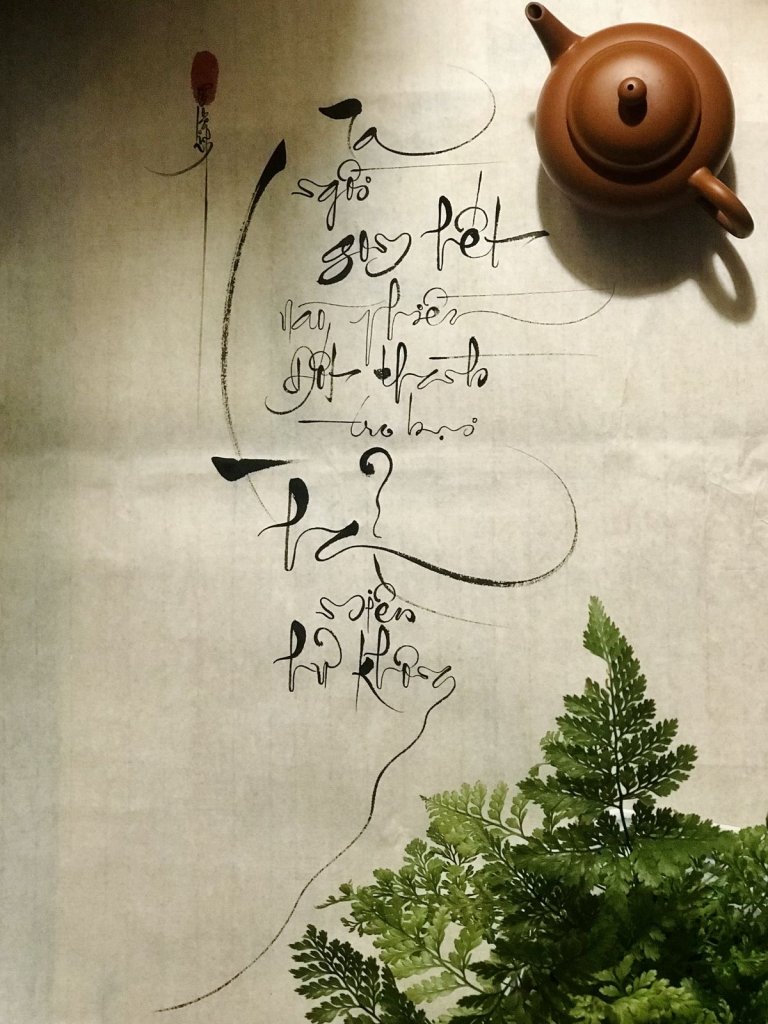 Ta
ngồi
gom hết
não phiền
Đốt thành
tro bụi
Thả
miền
hư không